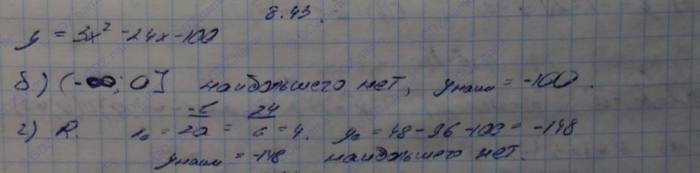 8.43.
y = 3x² - 24x - 100
б) (-∞; 0] наибольшего нет, yнаим = -100.
г) R. x₀ = -b/2a = 24/6 = 4. y₀ = 48 - 96 - 100 = -148
yнаим = -148 наибольшего нет.